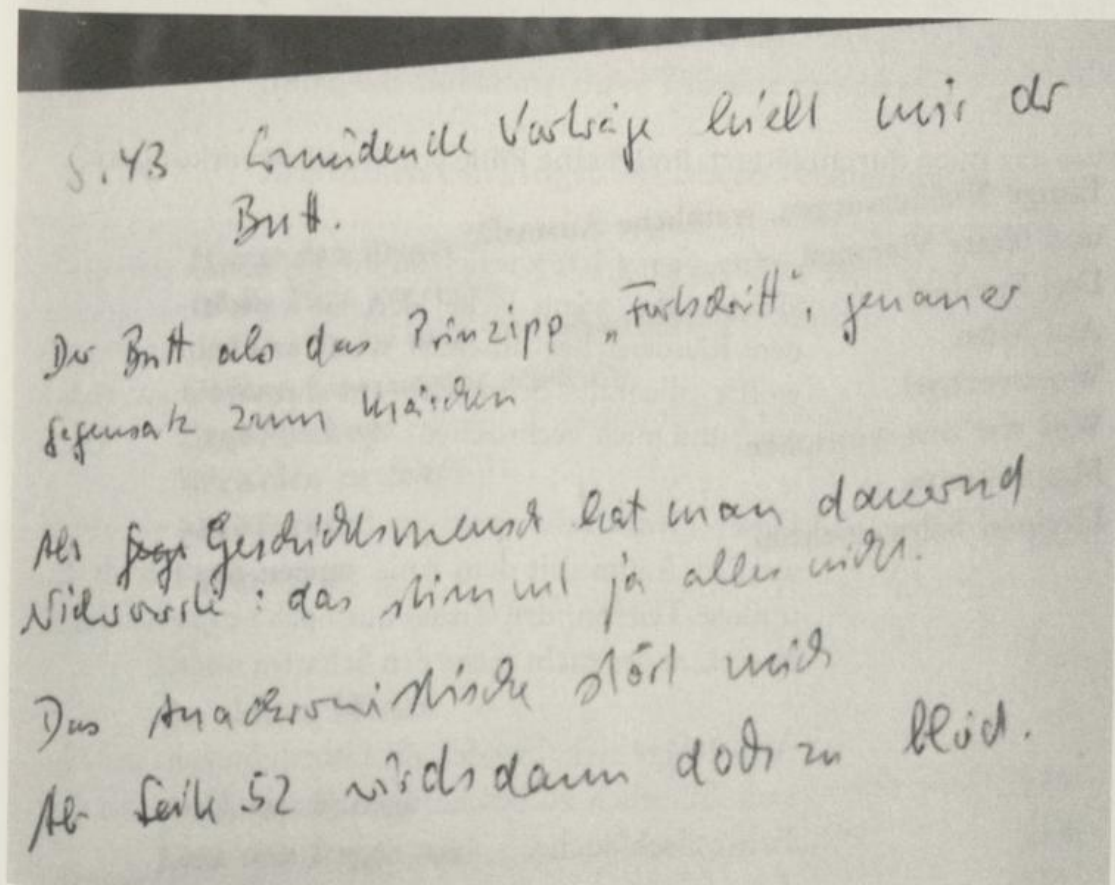 S. 43 Ermüdende Vorträge hielt mir der
Butt.
Der Butt als das Prinzipp „Fortschritt“, genauer
Gegensatz zum Märchen
Als Geschichtsmensch hat man dauernd
Widerworte: das stimmt ja alles nicht.
Das Anachronistische stört mich
Ab Seite 52 wirds dann doch zu blöd.